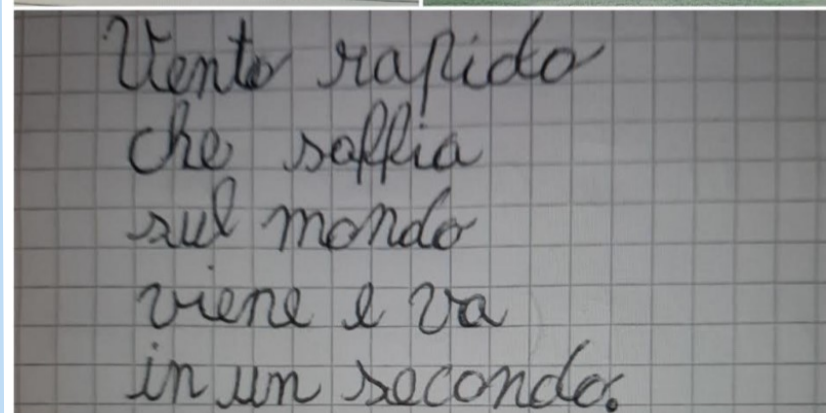 Vento rapido
che soffia
sul mondo
viene e va
in un secondo.